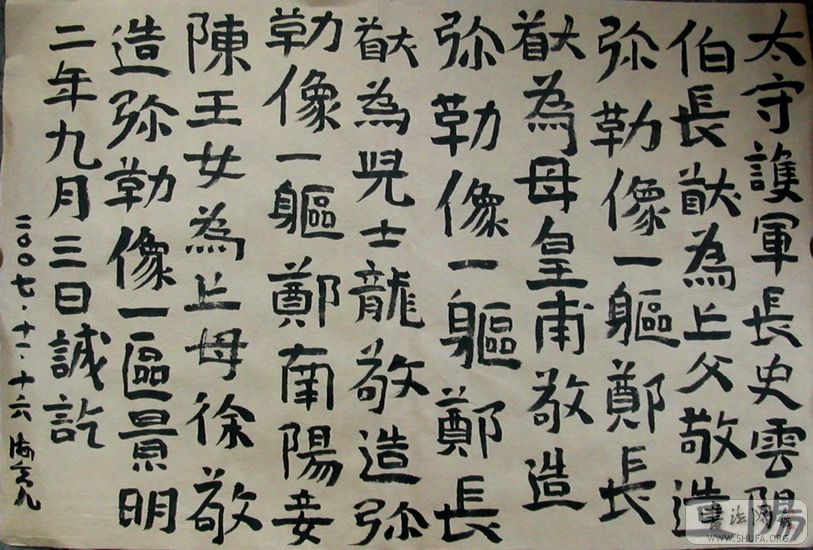 太守護軍長史雲陽
伯長猷為亡父敬造
弥勒像一軀鄭長
猷為母皇甫敬造
弥勒像一軀鄭長
猷為兒士龍敬造弥
勒像一軀鄭南陽妾
陳王女為亡母徐敬
造弥勒像一區景明
二年九月三日誠訖
二〇〇七·十二·十六
WWW.SHUFA.ORG